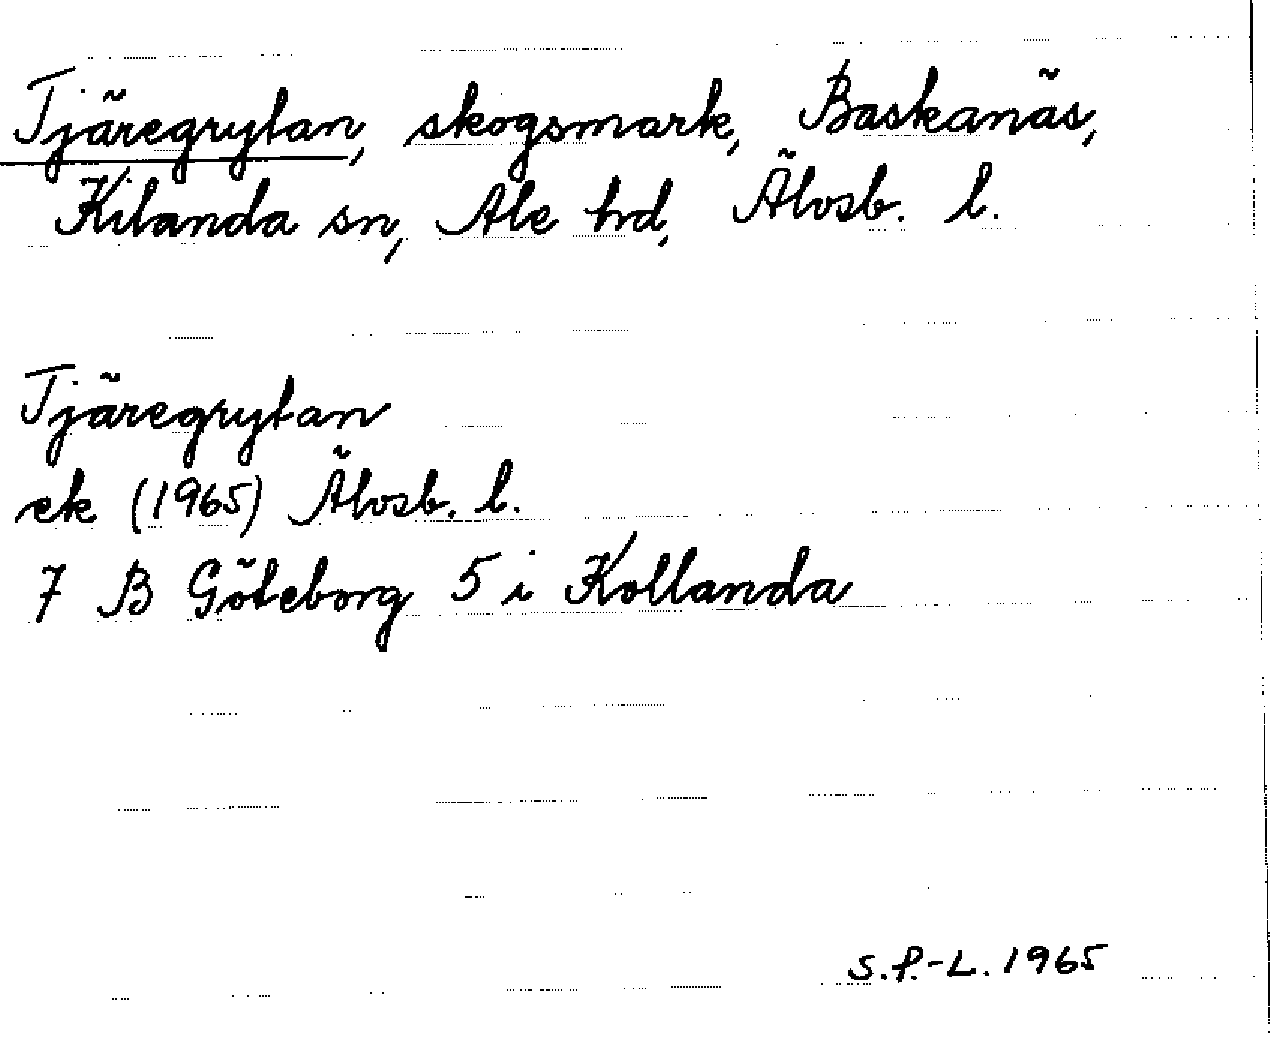 Tjäregrytan, skogsmark, Baskanäs,
Kilanda sn, Ale hrd, Älvsb. l.
Tjäregrytan
ek (1965) Älvsb. l.
7 B Göteborg 5 i Kollanda
S.P.-L. 1965